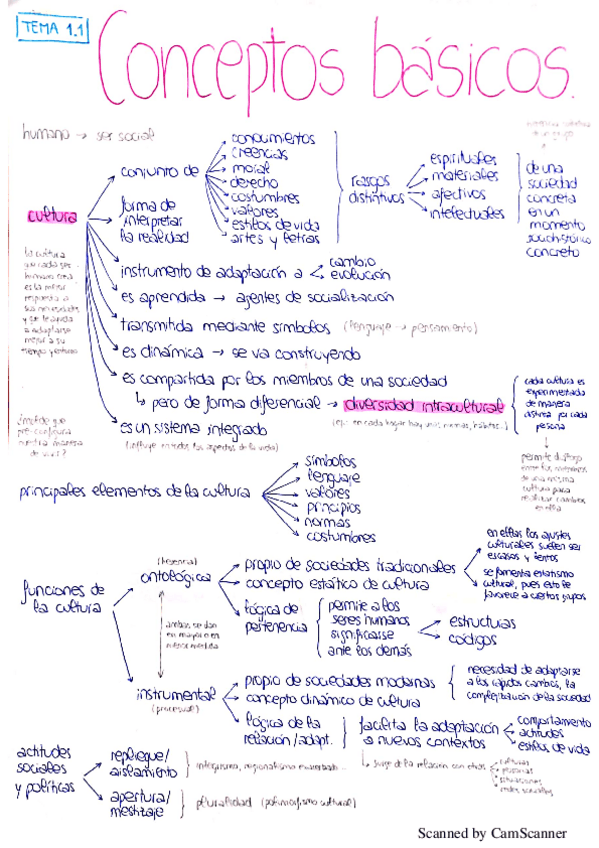 TEMA 1.1
Conceptos básicos.
humano → ser social
cultura
conjunto de
conocimientos
creencias
moral
derecho
costumbres
valores
estilos de vida
artes y letras
rasgos
distintivos
espirituales
materiales
afectivos
intelectuales
de una
sociedad
concreta
en un
momento
sociohistórico
concreto
forma de
interpretar
la realidad
la cultura
que cada ser
humano crea
es la mejor
respuesta a
sus necesidades
y que le ayuda
a adaptarse
mejor a su
tiempo y entorno
instrumento de adaptación a
cambio
evolución
es aprendida → agentes de socialización
transmitida mediante símbolos (lenguaje → pensamiento)
es dinámica → se va construyendo
es compartida por los miembros de una sociedad
↳ pero de forma diferencial → diversidad intracultural
(ej.: en cada hogar hay unas normas, hábitos..)
cada cultura es
experimentada
de manera
distinta por cada
persona
permite diálogo
entre los miembros
de una misma
cultura para
realizar cambios
en ella
es un sistema integrado
(influye en todos los aspectos de la vida)
¿molde que
pre-configura
nuestra manera
de vivir?
principales elementos de la cultura
símbolos
lenguaje
valores
principios
normas
costumbres
funciones de
la cultura
(herencia)
ontológica
propio de sociedades tradicionales
en ellas los ajustes
culturales suelen ser
escasos y lentos
se fomenta estatismo
cultural, pues esto le
favorece a ciertos grupos
concepto estático de cultura
lógica de
pertenencia
permite a los
seres humanos
significarse
ante los demás
estructuras
códigos
ambas se dan
en mayor o en
menor medida
instrumental
(procesual)
propio de sociedades modernas
necesidad de adaptarse
a los rápidos cambios, la
complejización de la sociedad
concepto dinámico de cultura
lógica de la
relación/adapt.
facilita la adaptación
a nuevos contextos
comportamiento
actitudes
estilos de vida
↳ surge de la relación con otras
culturas
personas
situaciones
redes sociales
actitudes
sociales
y políticas
repliegue/
aislamiento
integrismo, regionalismo exacerbado...
apertura/
mestizaje
pluralidad (polimorfismo cultural)
Scanned by CamScanner